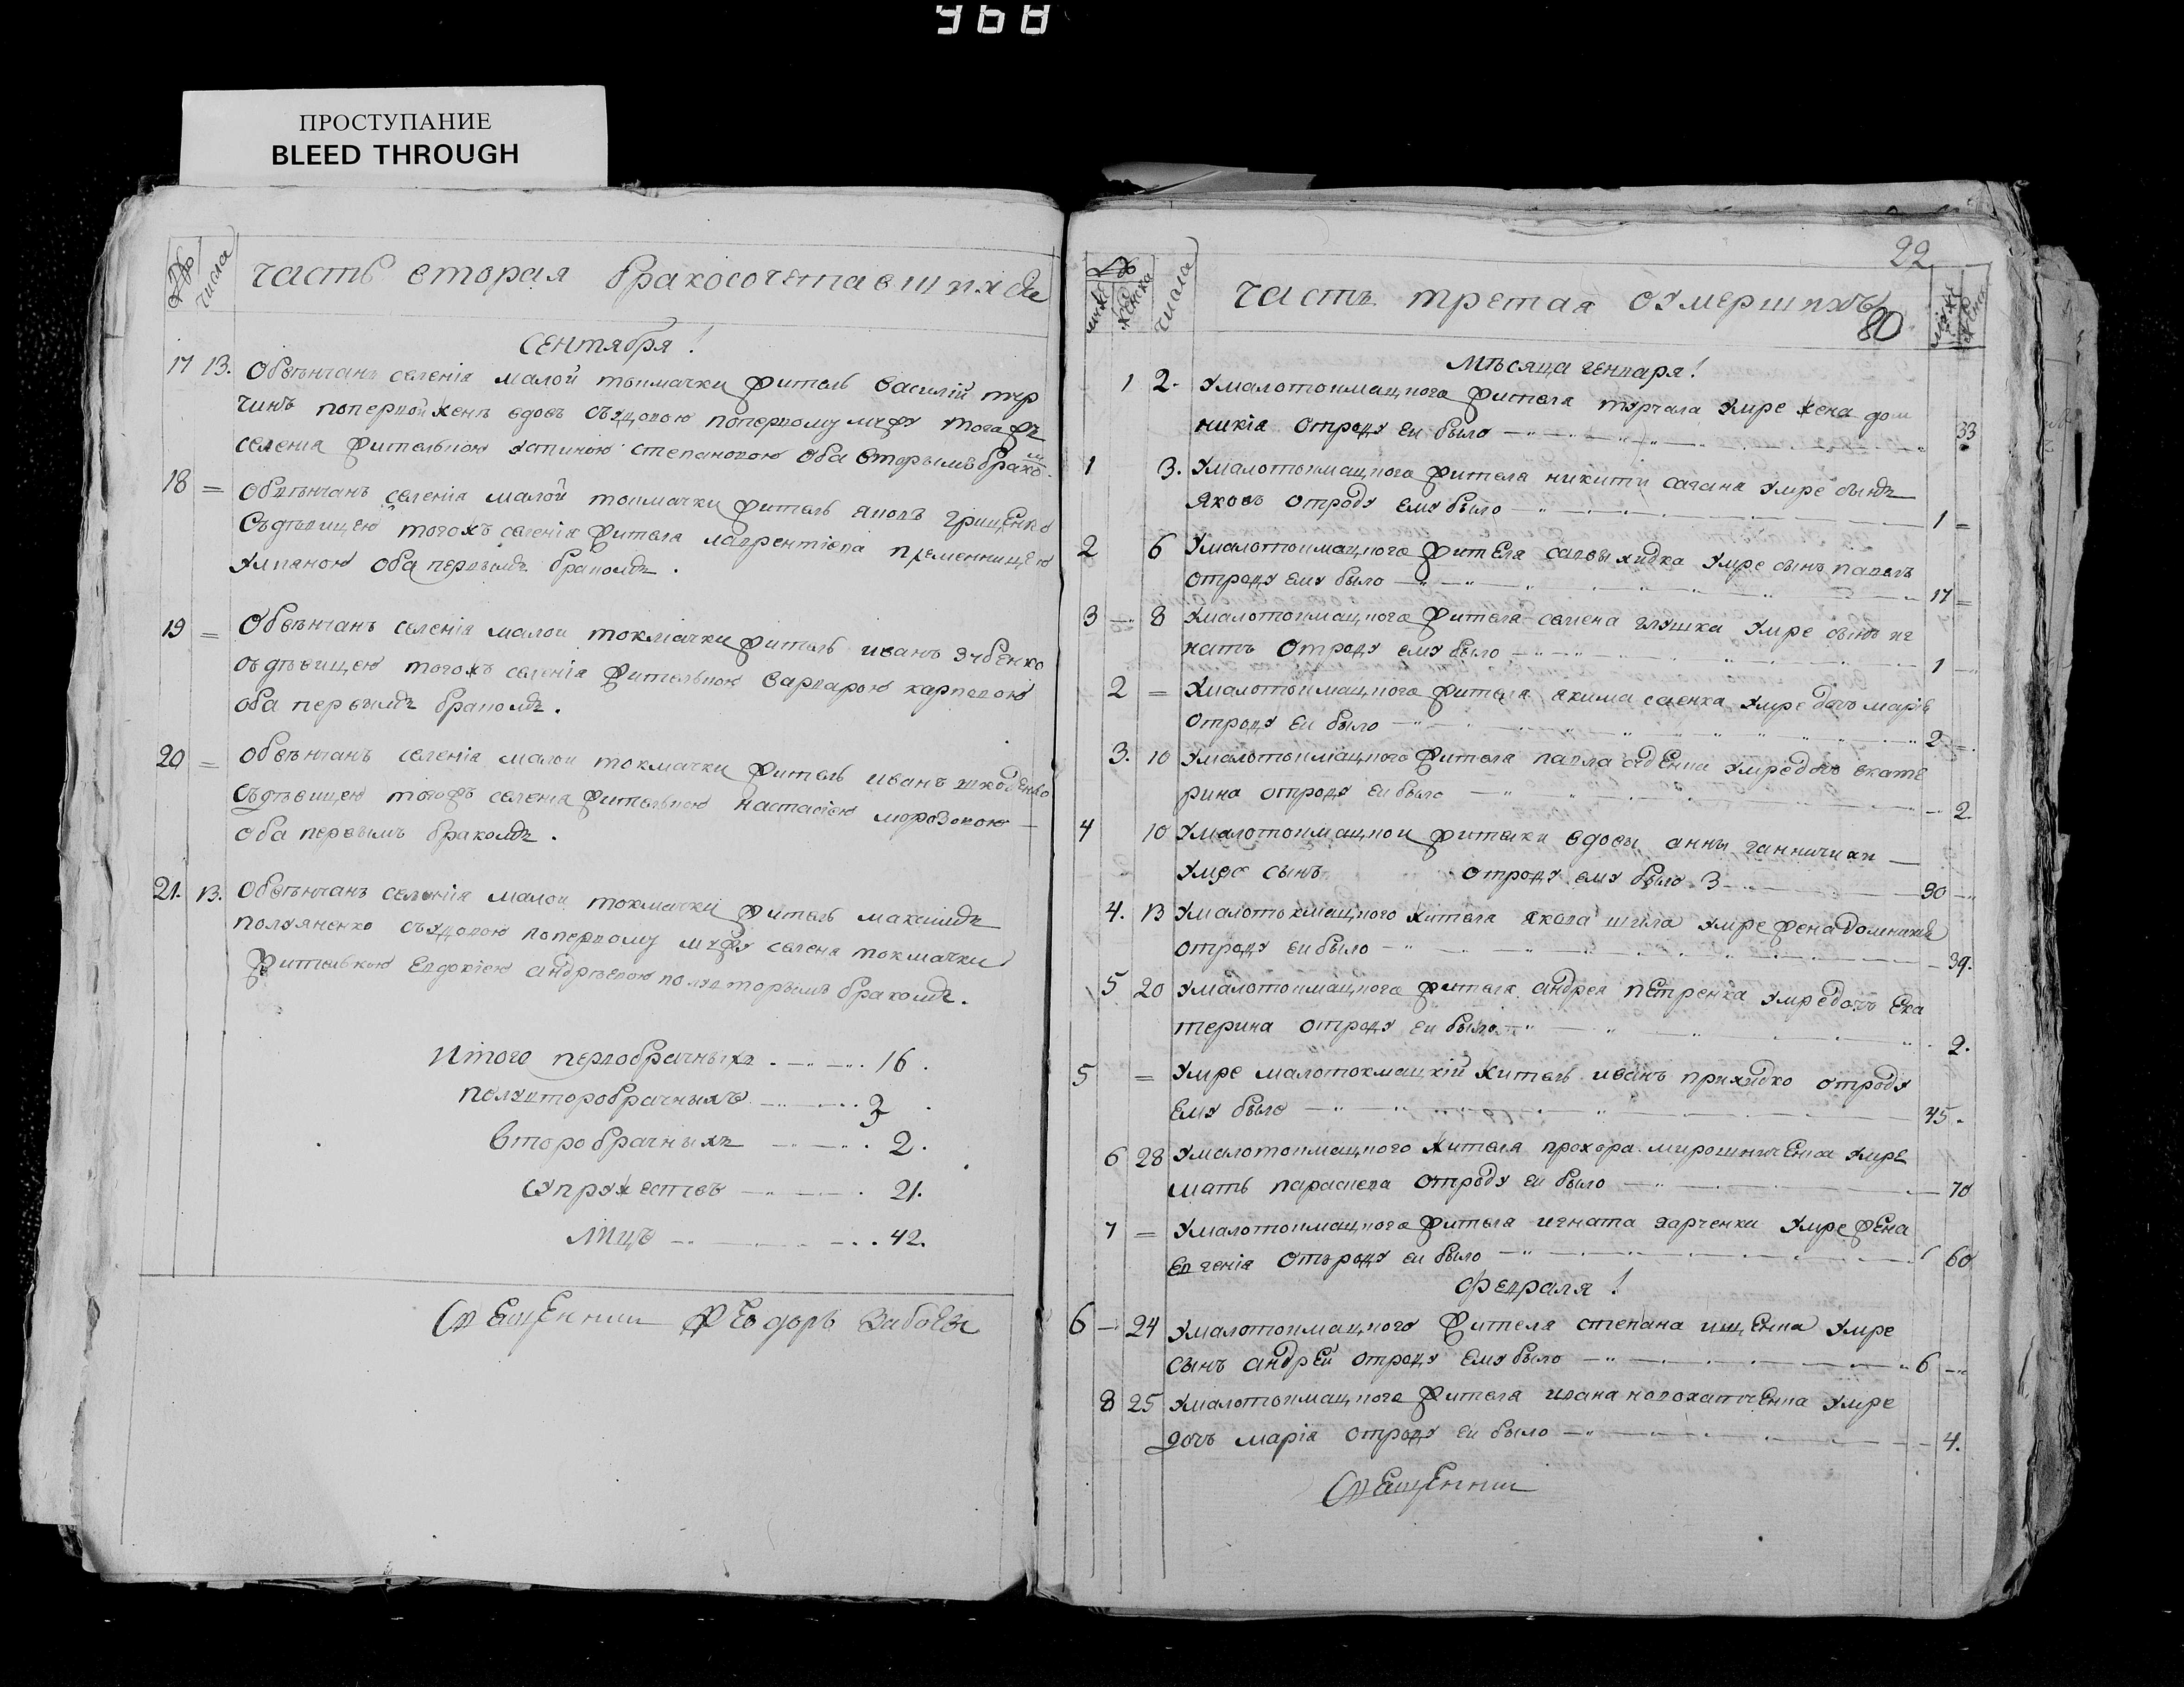 968
ПРОСТУПАНИЕ
BLEED THROUGH
№
числа
часть вторая бракосочетавшихся
сентября!
17 13. Обвѣнчанъ селенія малой токмачки житель василій
чинъ попервой женѣ вдовъ съвдовою попервому мужу тогожъ
селенія жительною устиною степановою оба вторымъ бракомъ
18 = Обвѣнчанъ селенія малой токмачки житель яковъ грищенко
Съдѣвицею тогожъ селенія жителя лаврентіева племенницею
уляною оба первымъ бракомъ.
19 = Обвѣнчанъ селенія малои токмачки житель иванъ зубенко
съдѣвицею тогожъ селенія жительною варварою карповою
оба первымъ бракомъ.
20 = обвѣнчанъ селенія малои токмачки житель иванъ шкоденко
съдѣвицею тогожъ селенія жительною настасіею морозовою
оба первымъ бракомъ.
21. 13. Обвѣнчанъ селенія малои токмачки житель максимъ
полуяненко съвдовою попервому мужу селена токмачки
жителькою Евдокіею андрѣевою полувторымъ бракомъ.
Итого первобрачныхъ 16.
полуторобрачныхъ 3.
второбрачныхъ 2.
супружествъ 21.
лицъ 42.
Священник Феодоръ
22
№
мужск
женска
числа
часть третая оумершихъ
80
мужс
женс
мѣсяца генваря!
1 2. Умалотокмацкого жителя турчала умре жена дом
никія отроду еи было 33
1 3. Умалотокмацкого жителя никити сагана умре сынъ
яковъ отроду ему было 1 =
2 6 Умалотокмацкого жителя саввы хидка умре сынъ павелъ
отроду ему было 17 =
3 8 Умалотокмацкого жителя семена глушка умре сынъ иг
натъ отроду ему было 1
2 = Умалотокмацкого жителя якима саенка умре дочъ марія
отроду еи было 2
3. 10 Умалотокмацкого жителя павла умре дочъ екате
рина отроду еи было 2
4 10 Умалотокмацкои жителки вдовы анны
умре сынъ отроду ему было 3 30
4. 13 Умалотокмацкого жителя якова шила умре жена домникія
отроду еи было 39.
5 20 Умалотокмацкого жителя андрея петренка умре дочъ ека
терина отроду еи было 2.
5 = Умре малотокмацкій житель иванъ прихидко отроду
ему было 45.
6 28 Умалотокмацкого жителя прохора мирошниченка умре
мать параскева отроду еи было 70
7 = Умалотокмацкого жителя игната харченка умре жена
евгенія отъроду еи было 60
февраля!
6 24 Умалотокмацкого жителя степана ищенка умре
сынъ андрей отроду ему было 6
8 25 Умалотокмацкого жителя ивана новохатченка умре
дочъ марія отроду еи было 4.
Священник